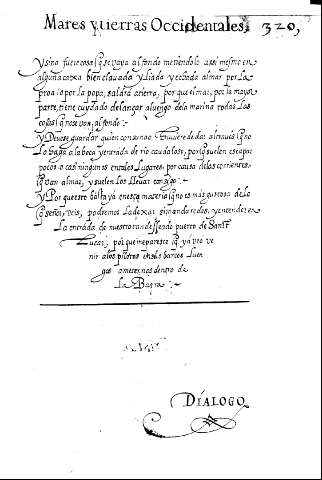 Mares y tierras Occidentales. 320,
y si no fuere cosa q̃ se vaya al fondo metiendolo assi mesmo en
alguna caxa bien clavada y liada y echada al mar por la
proa o por la popa, saldra a tierra, por que el mar, por la mayor
parte, tiene cuydado de lançar a luengo dela marina todas las
cosas q̃ no se van, al fondo:-
y Devese, guardar quien con se no se si tuviere, de dar al traves q̃ no
lo haga a la boca y entrada de rio caudaloso, porq̃ suelen escapar
pocos o casi ningunos en tales Lugares, por causa de las corrientes
q̃ van al mar, y suelen los llevar consigo:-
y Por que esto basta ya en esta materia
q̃ señor, veis, podremos La dexar si mandaredes, y entender en
La entrada de nuestro
puerto de Sant
Lucar, por que me paresce q̃ ya veo ve
nir a los pilotos en sus barcos Lue
go a meternos dentro de
La Barra:-
DIALOGO